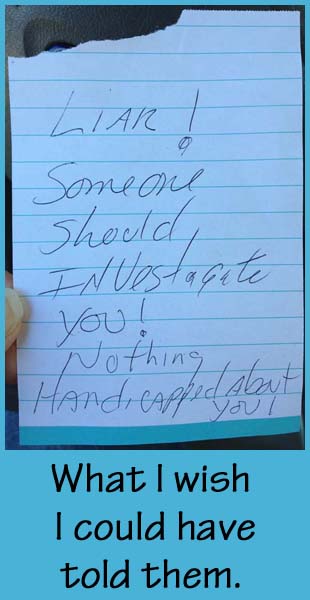 LIAR!
Someone
Should
INVestagate
YOU!
Nothing
HANdicAPPed About
YOU!
What I wish
I could have
told them.